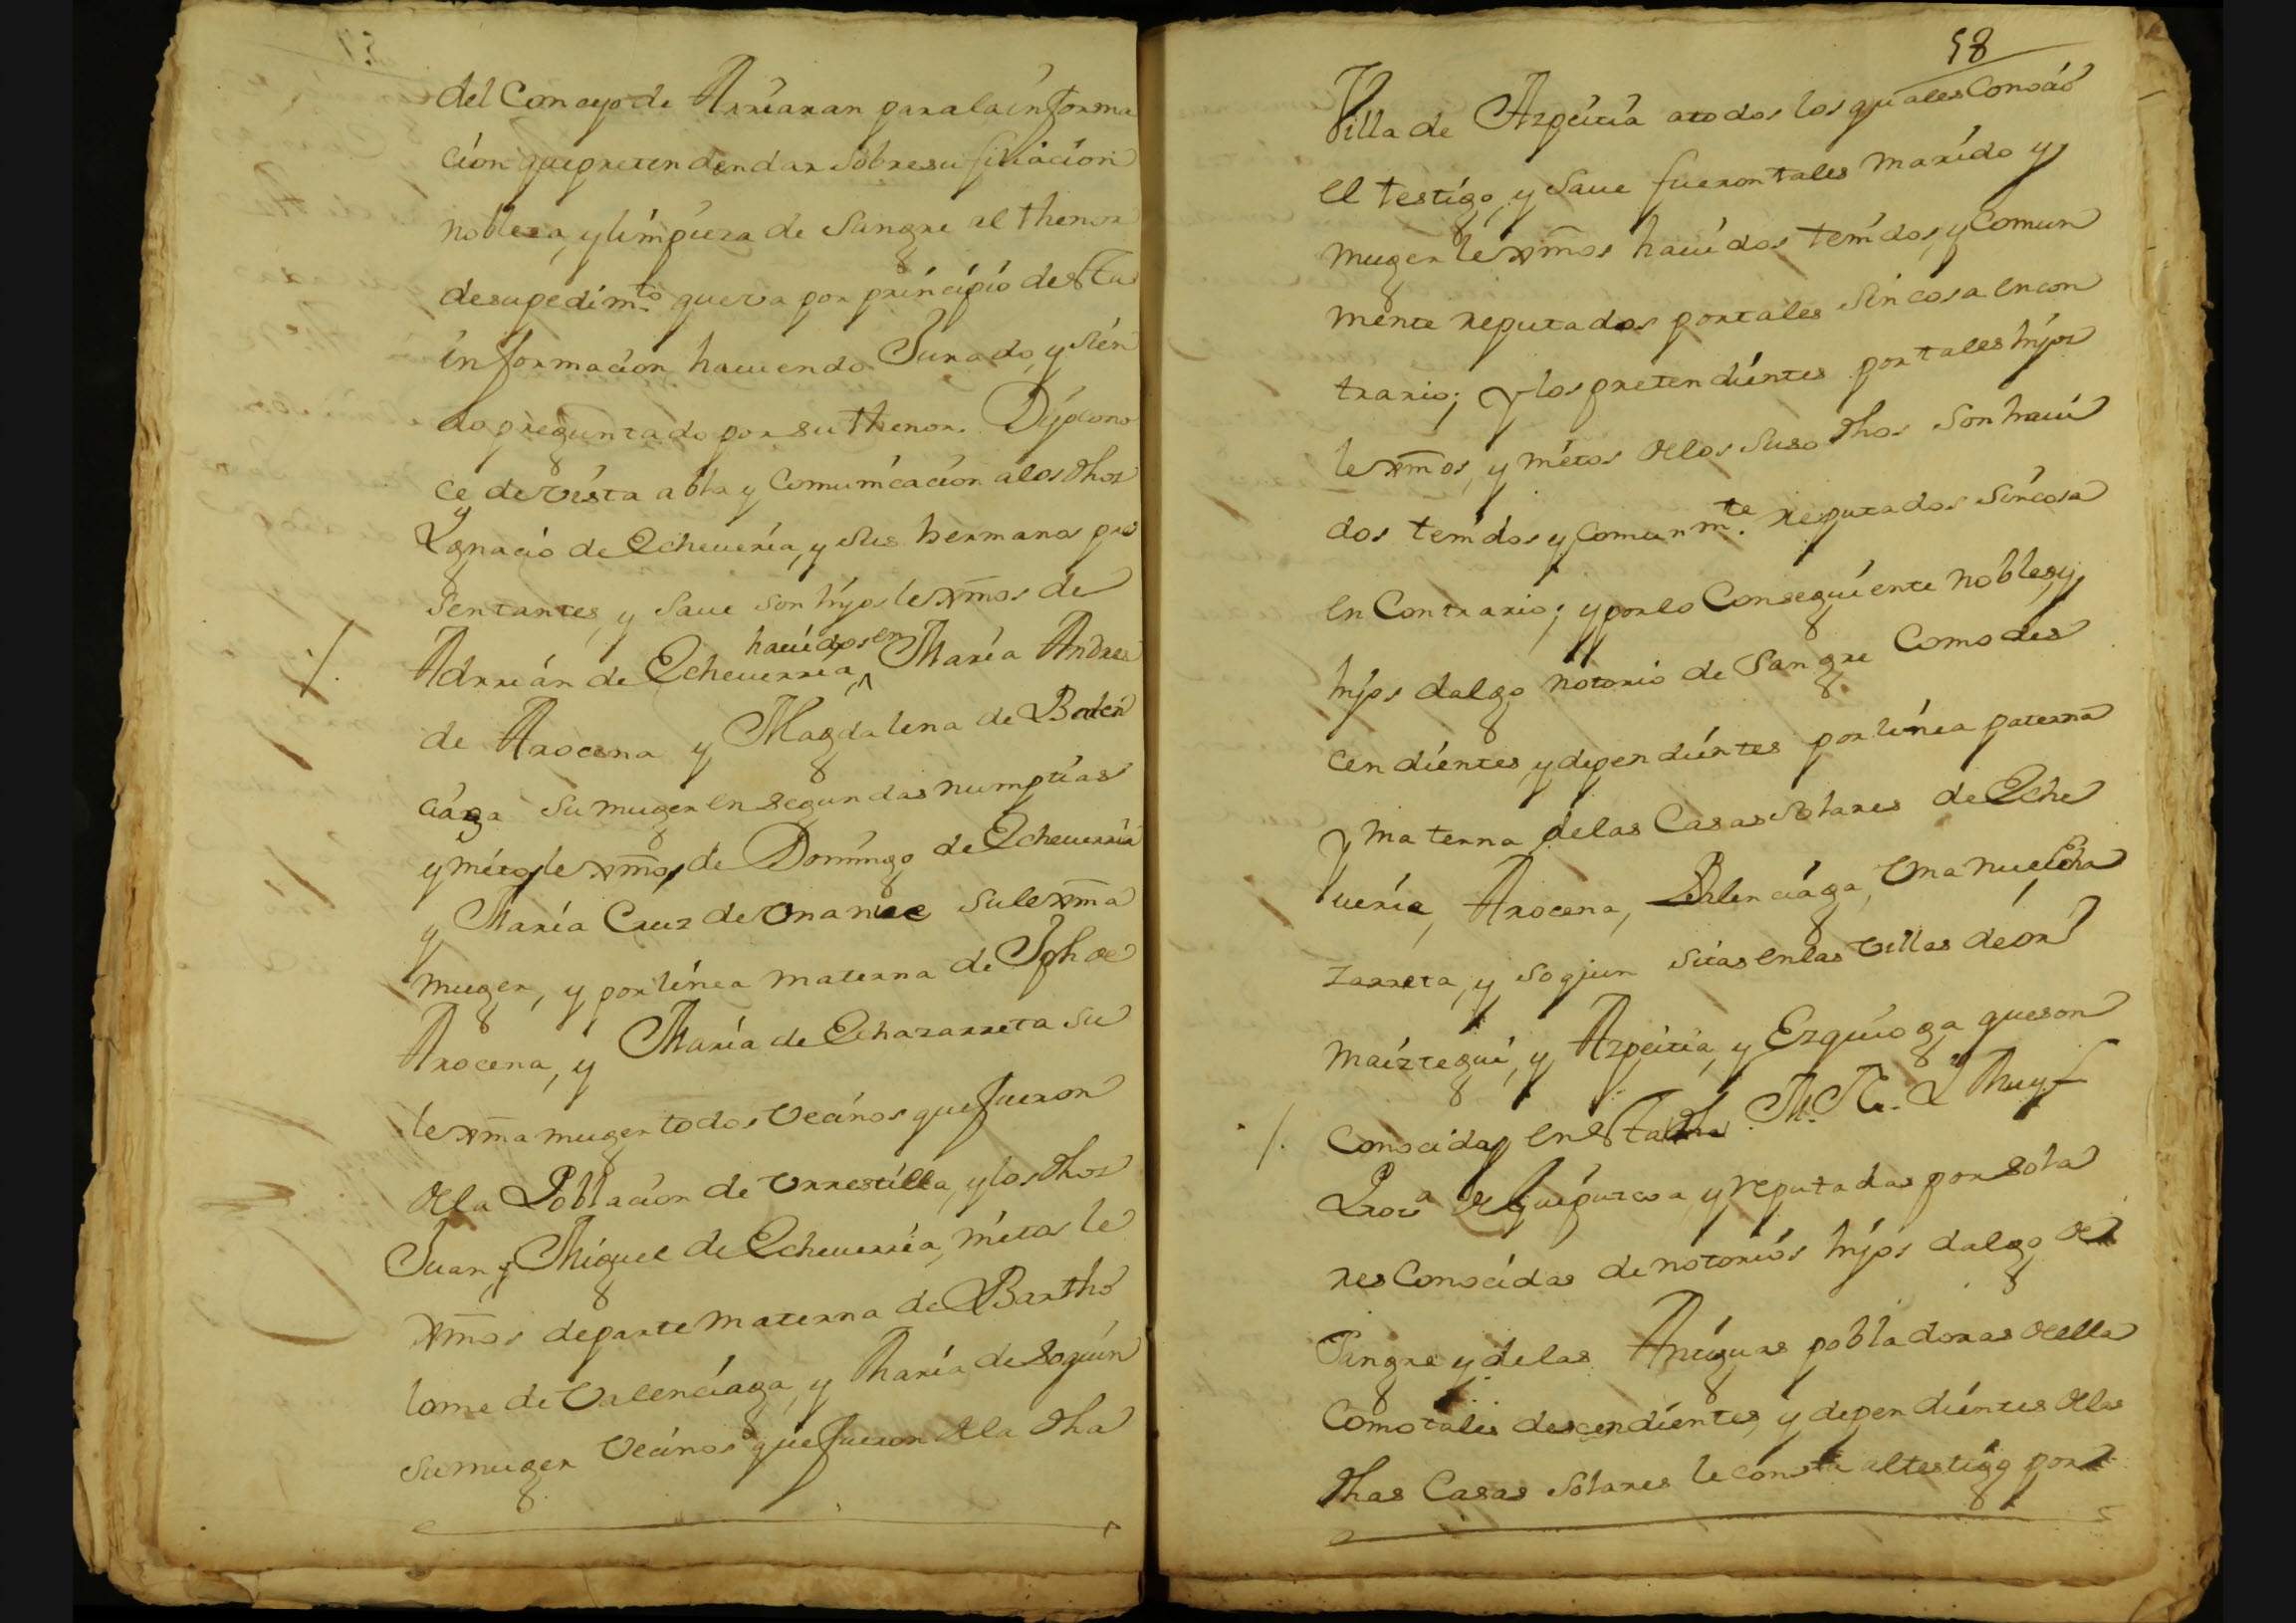 del Concejo de Arriaran para la informa
cion que pretenden dar sobre su filiacion
nobleza, y limpieza de Sangre al thenor
de su pedimto. que va por principio de esta
informacion haviendo Jurado, y sien
do preguntado por su thenor. Dijo cono
ce de vista abla y Comunicacion a los dhos
Ygnacio de Echeuerria, y sus hermanos pre
sentantes, y saue son hijos lexmos de
havidos en
Adrian de Echeuerria, Maria Andres
de Arocena y Magdalena de
ciaga su muger en segundas numptias
y nietos lexmos de Domingo de Echeuerria
y Maria Cruz de su lexma
muger, y por linea materna de Jph de
Arocena, y Maria de Echazarreta su
lexma muger todos vecinos que fueron
de la Poblacion de Vrrestilla, y los dhos
Juan y Miguel de Echeuerria, nietos le
xmos de parte materna de Bartho
lome de Valenciaga, y Maria de Soquin
su muger vecinos que fueron de la dha
58
Villa de Azpeitia a todos los quales Conocio
el testigo, y saue fueron tales marido y
muger lexmos hauidos tenidos, y comun
mente reputados por tales sin cosa en con
trario; y los pretendientes por tales hijos
lexmos, y nietos de los suso dhos son haui
dos tenidos y comunmte. reputados sin cosa
en Contrario; y por lo Conseguiente nobles, y
hijos dalgo notorio de Sangre Como des
cendientes, y dependientes por linea paterna
y materna de las Casas Solares de Eche
ueria, Arocena, Balenciaga, Echa
zarreta, y Soqiun sitas en las villas de or
maiztegui, y Azpeitia, y Ezquioga que son
conocidas en esta dha M. N. y Muy L
Prova de Guipuzcoa, y reputadas por sola
res Conocidas de notorios hijos dalgo de
Sangre y de las Antiguas pobladoras de ella
Como tales descendientes, y dependientes de las
dhas Casas Solares le consta al testigo por